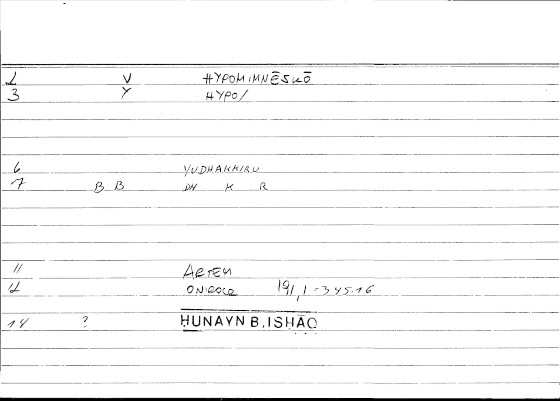 2 V HYPOMIMNĒSKŌ
3 Y HYPO/
6 YUDHAKKIRU
7 B B DH K R
11 ARTEM
12 ONEROCR 191,1-345.16
14 ? HUNAYN B. ISHĀQ